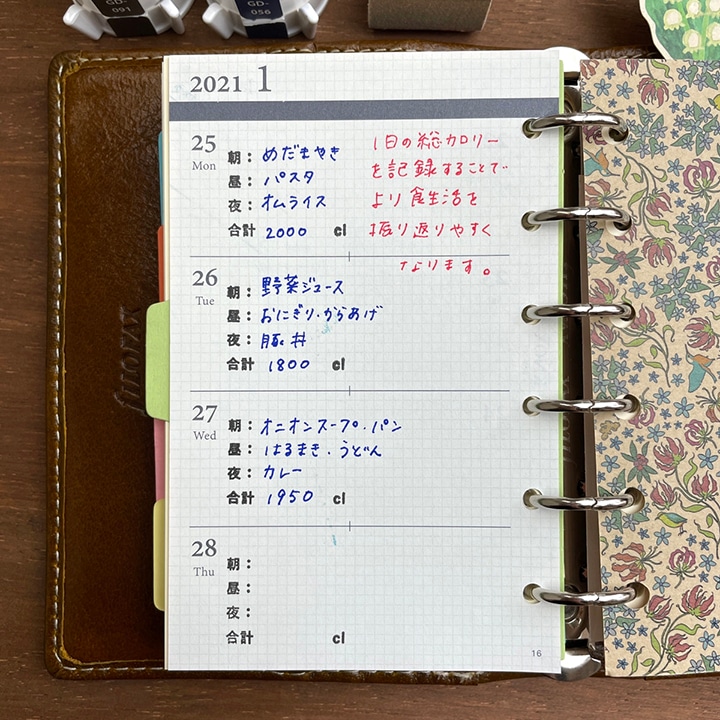 GD-
091
GD-
056
2021 1
25
Mon
朝： めだまやき
昼： パスタ
夜： オムライス
合計 2000 cl
1日の総カロリー
を記録することで
より食生活を
振り返りやすく
なります。
26
Tue
朝： 野菜ジュース
昼： おにぎり・からあげ
夜： 豚丼
合計 1800 cl
27
Wed
朝： オニオンスープ・パン
昼： はるまき・うどん
夜： カレー
合計 1950 cl
28
Thu
朝：
昼：
夜：
合計 cl
16
filofax